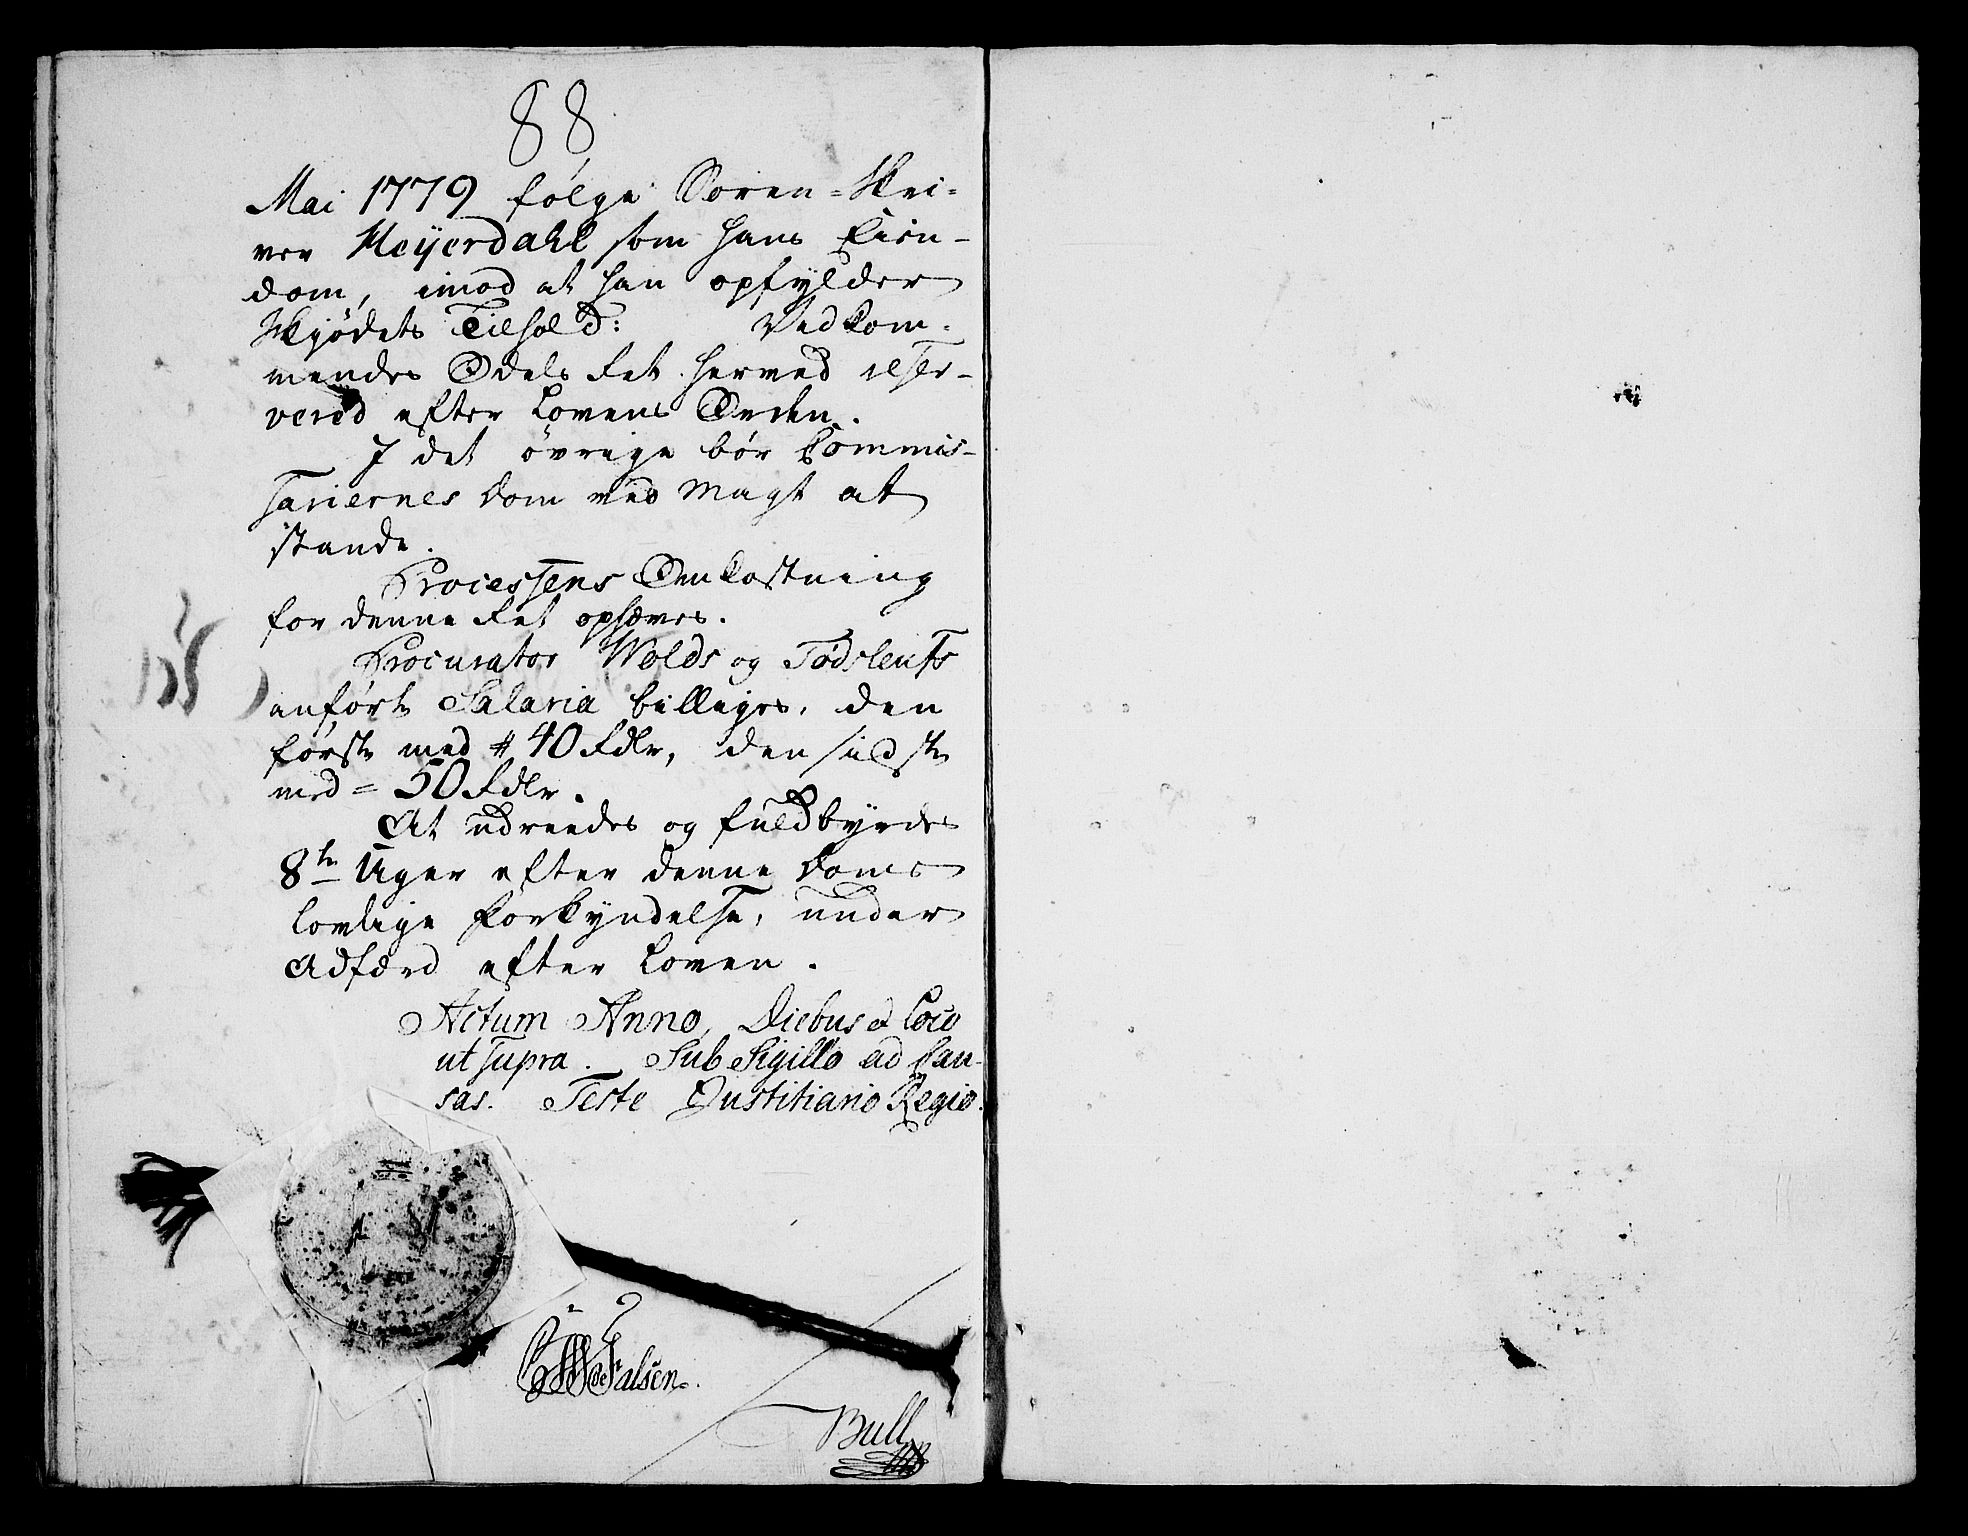 88
Mai 1779 følge Soren-Skri-
ver Meyerdahl som hans Eien-
dom, imod at han opfylder
Skjödets Tilhold: Vedkom-
mendes Odels Ret herved reser-
vered efter Lovens Orden.
I det övrige bör Commis-
sariernes Dom ved Magt at
stande.
Processens Omkostning
for denne Ret ophæves.
Procurator Wolds og Tödslefs
anförte Salaria billiges, den
förste med # 40 Rdlr, den sidste
med = 50 Rdlr.
At udreedes og fuldbyrdes
8te Uger efter denne Doms
lovlige Forkyndelse, under
Adfærd efter Loven.
Actum Anno, Diebus et Loco
ut supra. Sub Sigillo ad Cau-
sas. Teste Justitiario Regio.
de Falsen.
Bull